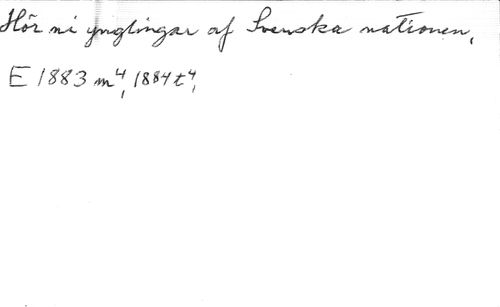 Hör ni ynglingar af Svenska nationen,
E 1883 m⁴, 1884 t⁴,